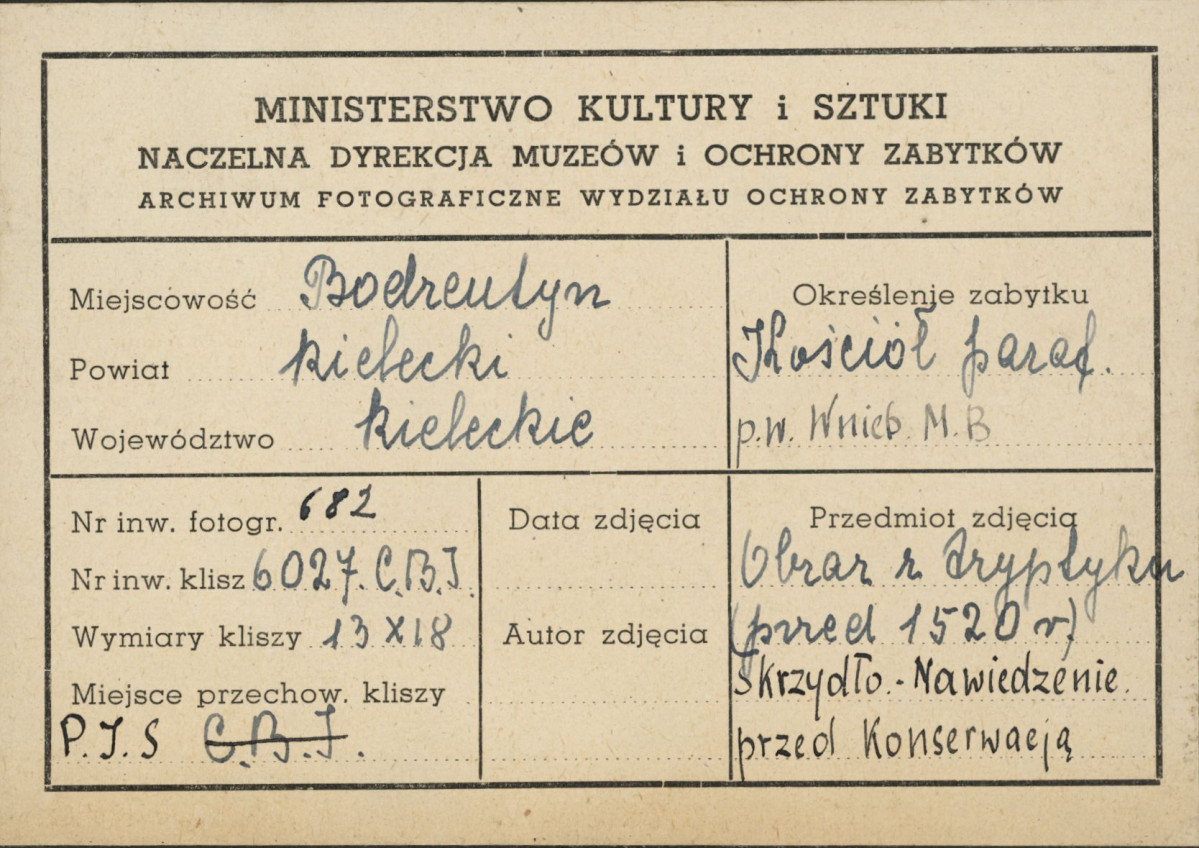 MINISTERSTWO KULTURY i SZTUKI
NACZELNA DYREKCJA MUZEÓW i OCHRONY ZABYTKÓW
ARCHIWUM FOTOGRAFICZNE WYDZIAŁU OCHRONY ZABYTKÓW
Miejscowość Bodzentyn
Powiat kielecki
Województwo kieleckie
Określenie zabytku
Kościół paraf.
p.w. Wnieb. M.B
Nr inw. fotogr. 682
Nr inw. klisz 6027. C.B.I.
Wymiary kliszy 13 x 18
Miejsce przechow. kliszy
P.I.S C.B.I.
Data zdjęcia
Autor zdjęcia
Przedmiot zdjęcia
Obraz z tryptyku
(przed 1520 r.)
Skrzydło.- Nawiedzenie.
przed Konserwacją